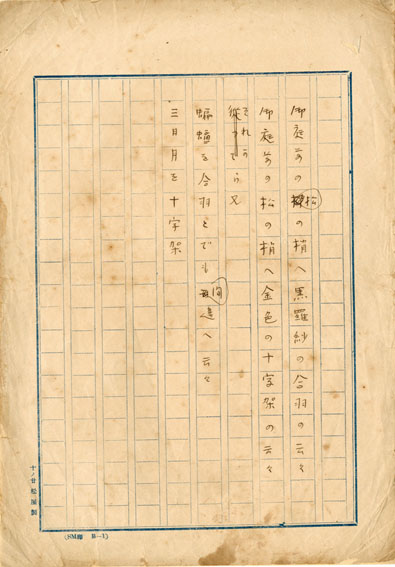 御庭前の松の梢へ黒羅紗の合羽の云々
御庭前の松の梢へ金色の十字架の云々
それから又
蝙蝠を合羽とでも間違へ云々
三日月を十字架
十ノ廿 松屋製
(SM印 B—1)